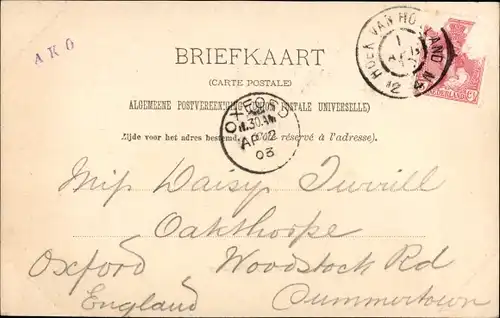 AKO
BRIEFKAART
(CARTE POSTALE)
ALGEMEENE POSTVEREENIGING POSTALE UNIVERSELLE)
Zijde voor het adres bestemd. réservé à l'adresse).
HOEK VAN HOLLAND
OXFORD
AP 2
03
Miss Daisy Turrill
Oakthorpe
Oxford Woodstock Rd
England Summertown